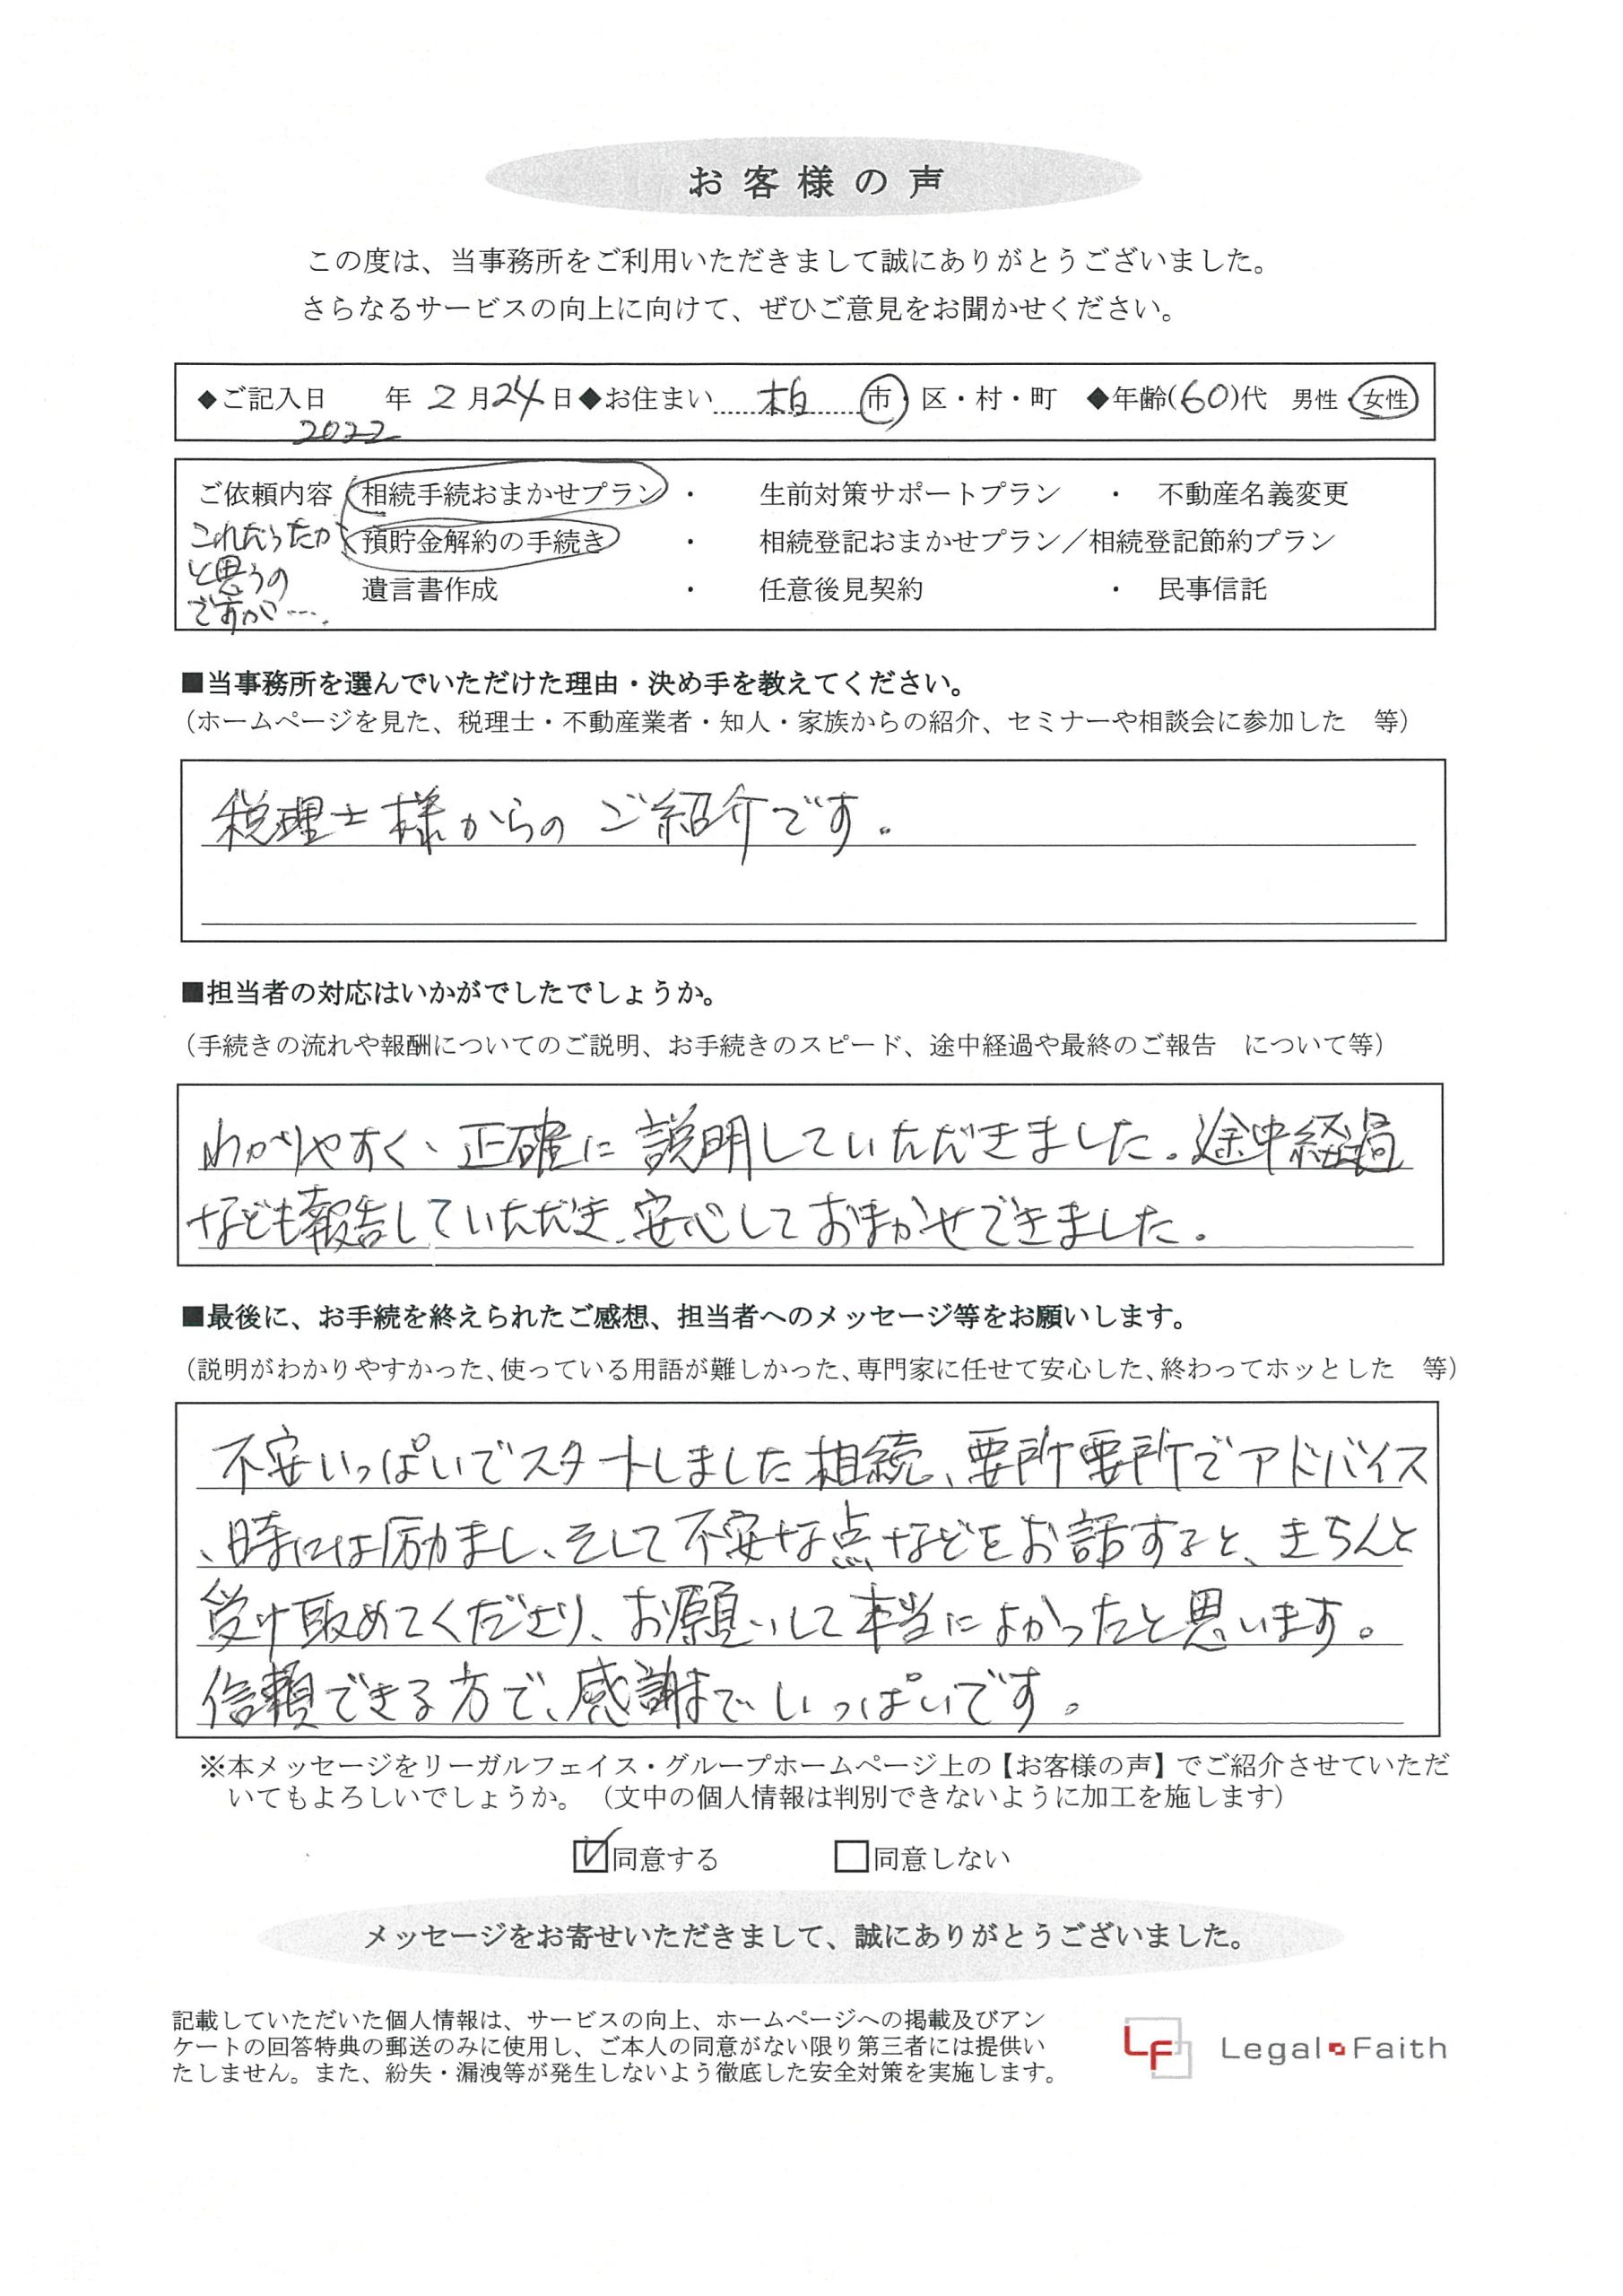 お客様の声
この度は、当事務所をご利用いただきまして誠にありがとうございました。
さらなるサービスの向上に向けて、ぜひご意見をお聞かせください。
◆ご記入日 年 2月24日◆お住まい 柏 市・区・村・町 ◆年齢(60)代 男性・女性
2022
ご依頼内容 相続手続おまかせプラン ・ 生前対策サポートプラン ・ 不動産名義変更
これだったか 預貯金解約の手続き ・ 相続登記おまかせプラン／相続登記節約プラン
と思うの
遺言書作成 ・ 任意後見契約 ・ 民事信託
ですが….
■当事務所を選んでいただけた理由・決め手を教えてください。
（ホームページを見た、税理士・不動産業者・知人・家族からの紹介、セミナーや相談会に参加した 等）
税理士様からの ご紹介です。
■担当者の対応はいかがでしたでしょうか。
（手続きの流れや報酬についてのご説明、お手続きのスピード、途中経過や最終のご報告 について等）
わかりやすく、正確に説明していただきました。途中経過
なども報告していただき、安心しておまかせできました。
■最後に、お手続を終えられたご感想、担当者へのメッセージ等をお願いします。
（説明がわかりやすかった、使っている用語が難しかった、専門家に任せて安心した、終わってホッとした 等）
不安いっぱいでスタートしました相続、要所要所でアドバイス
、時には励まし、そして不安な点などをお話すると、きちんと
受け取めてくださり、お願いして本当によかったと思います。
信頼できる方で、感謝までいっぱいです。
※本メッセージをリーガルフェイス・グループホームページ上の【お客様の声】でご紹介させていただ
いてもよろしいでしょうか。（文中の個人情報は判別できないように加工を施します）
☑同意する □同意しない
メッセージをお寄せいただきまして、誠にありがとうございました。
記載していただいた個人情報は、サービスの向上、ホームページへの掲載及びアン
ケートの回答特典の郵送のみに使用し、ご本人の同意がない限り第三者には提供い
たしません。また、紛失・漏洩等が発生しないよう徹底した安全対策を実施します。
LF Legal Faith